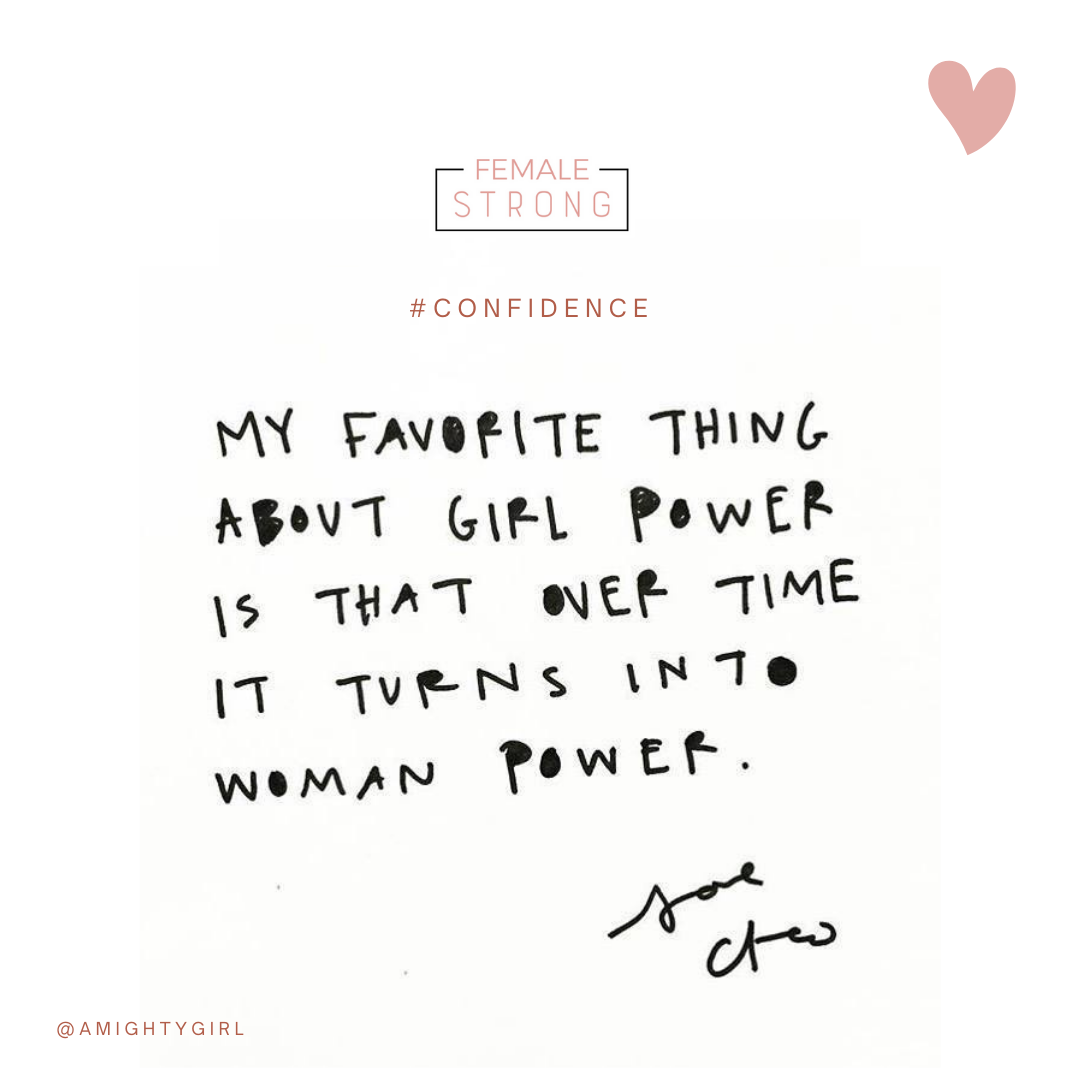 FEMALE
STRONG
#CONFIDENCE
MY FAVORITE THING
ABOUT GIRL POWER
IS THAT OVER TIME
IT TURNS INTO
WOMAN POWER.
@AMIGHTYGIRL